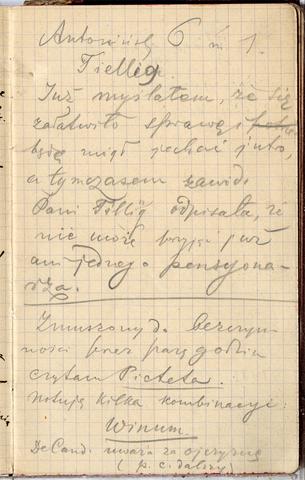 Antonińsk 6 m 1.
Tiellig.
Już myślałem, że się
załatwiło sprawę i
będę mógł jechać jutro,
a tymczasem zawód.
Pani Tillig odpisała, że
nie może przyjąć już
ani jednego pensyona-
rza.
Zmuszony do bezczyn-
ności przez parę godzin
czytam Picteta.
Notuję kilka kombinacyi:
Winum.
DeCand. uważa za ojczyznę
(p. c. dalszy)